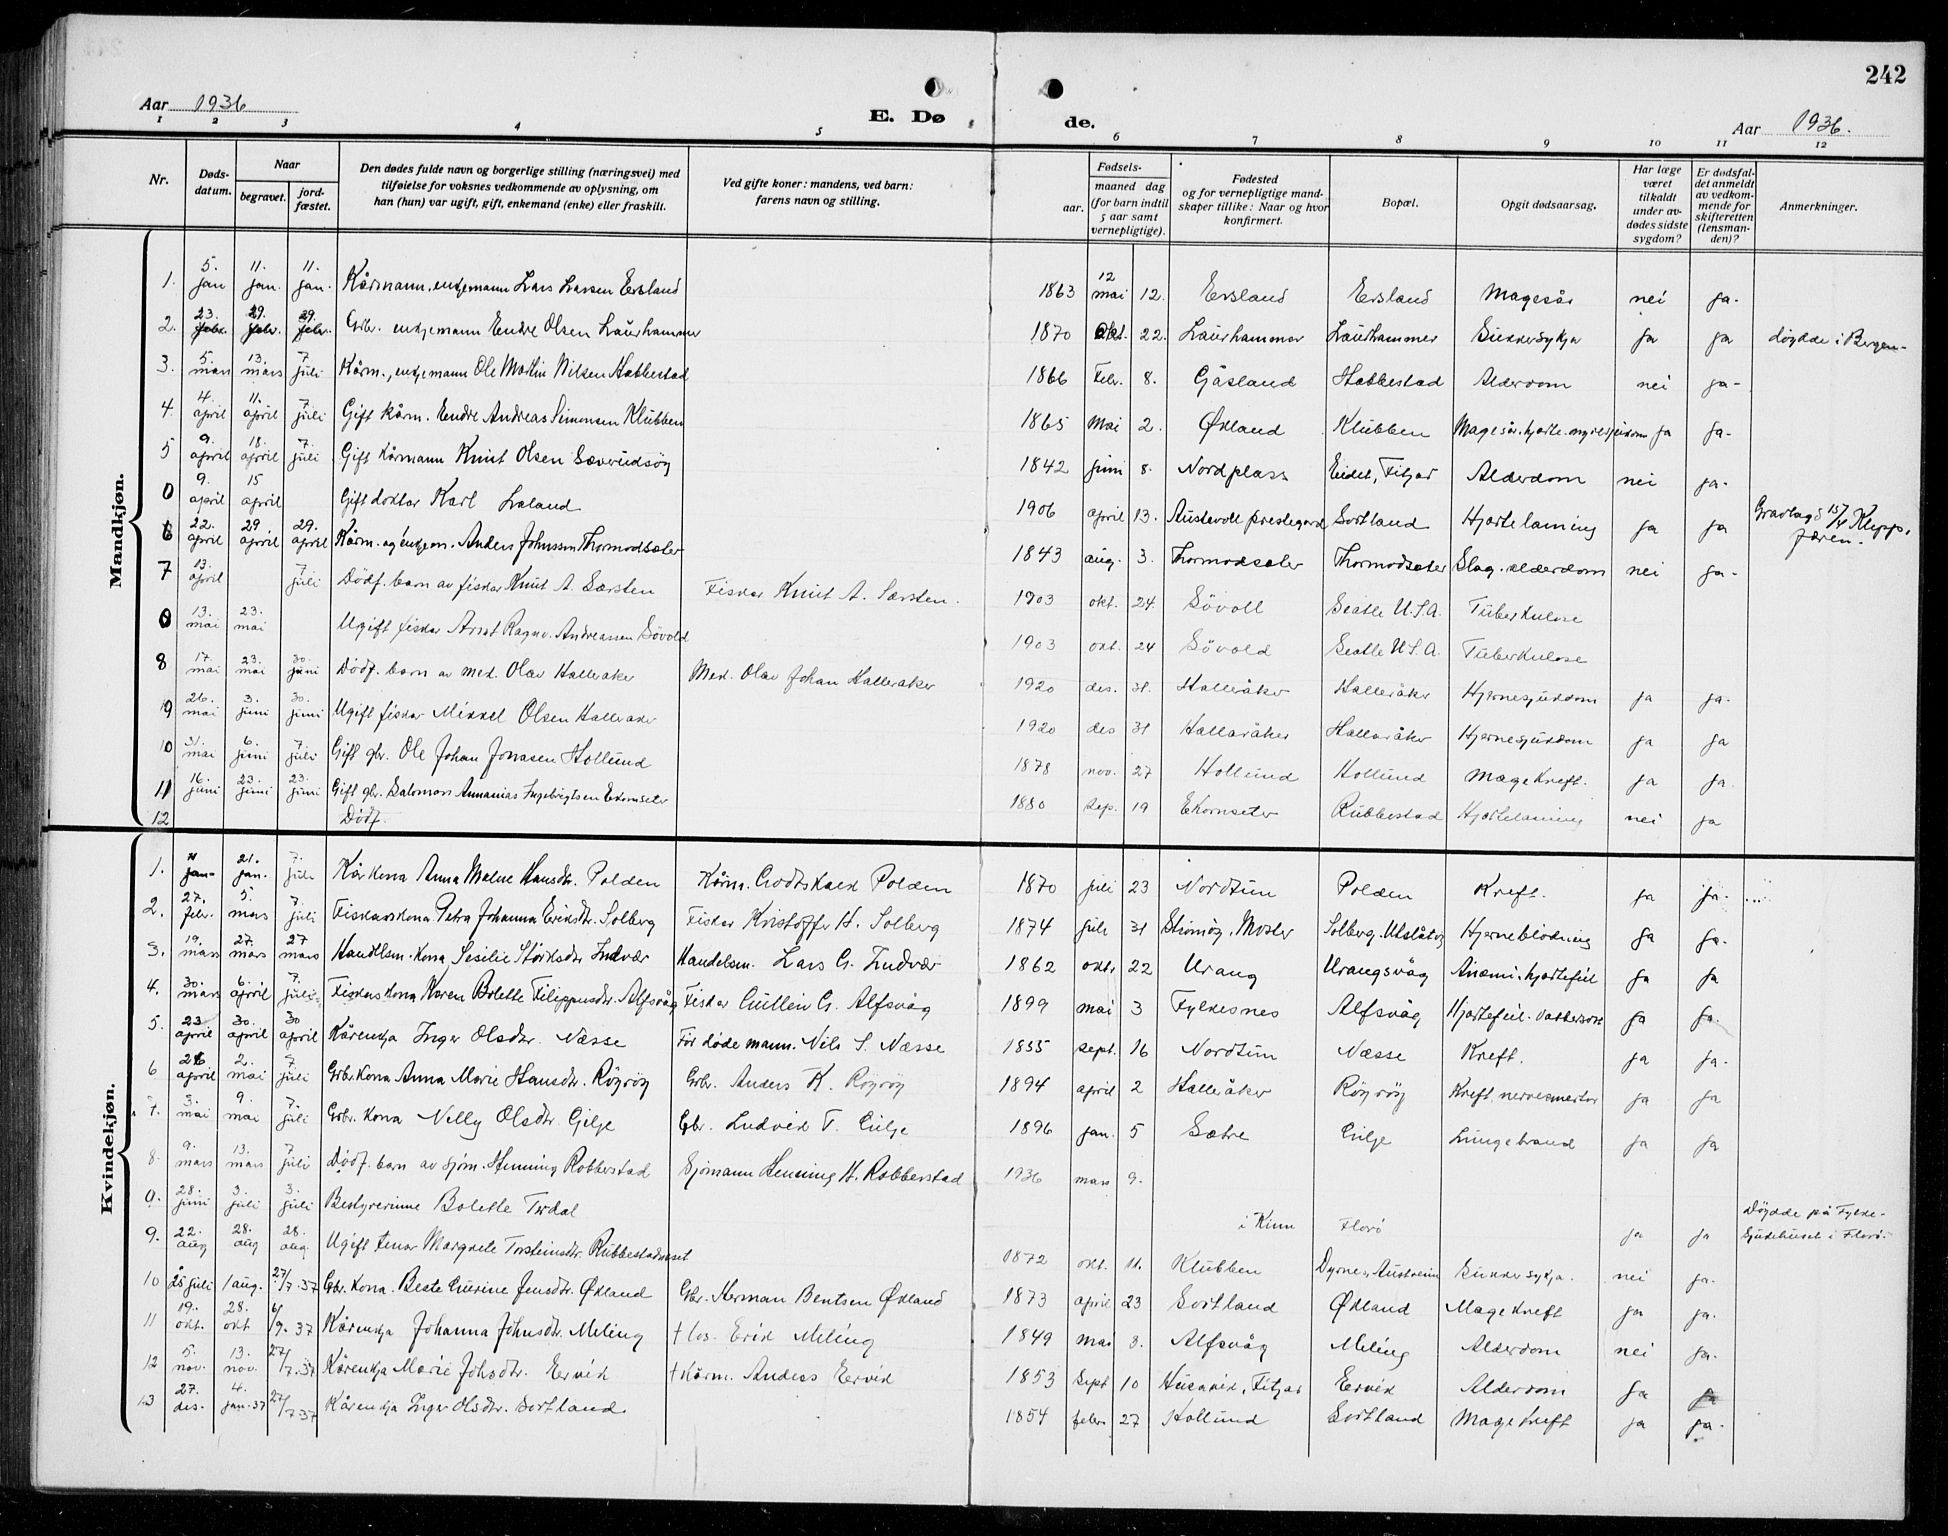 242
Aar 1936
E. Døde.
Aar 1936.
1 2 3 4 5 6 7 8 9 10 11 12
Nr.
Døds-datum.
Naar
begravet.
jord-fæstet.
Den dødes fulde navn og borgerlige stilling (næringsvei) med
tilføielse for voksnes vedkommende av oplysning, om
han (hun) var ugift, gift, enkemand (enke) eller fraskilt.
Ved gifte koner: mandens, ved barn:
farens navn og stilling.
Fødsels-
aar.
maaned dag
(for barn indtil
5 aar samt
vernepligtige).
Fødested
og for vernepligtige mand-
skaper tillike: Naar og hvor
konfirmert.
Bopæl.
Opgit dødsaarsag.
Har læge
været
tilkaldt
under av-
dødes sidste
sygdom?
Er dødsfal-
det anmeldt
av vedkom-
mende for
skifteretten
(lensman-
den)?
Anmerkninger.
Mandkjøn.
1. 5. jan 11. jan. 11. jan. Kårmann, enkjemann Lars Larsen Ersland 1863 12 mai 12. Ersland Ersland Magesår nei ja.
2. 23. febr. 29. febr. 29. febr. Gbr. enkjemann Endre Olsen Laurhammer 1870 Okt. 22. Laurhammer Laurhammer Sukkersykja ja ja døydde i Bergen
3. 5. mars 13. mars 7. juli Kårm., enkjemann Ole Martin Nilsen Habbestad 1866 Febr. 8. Gåsland Habbestad Alderdom nei ja
4. 4. april 11. april 7 juli Gift kårm. Endre Andreas Simonsen Klubben 1865 mai 2. Økland Klubben Magesår. hjarte. ja ja
5 9. april 18. april 7. juli Gift Kårmann Knut Olsen Sæverudsøy 1842 juni 8. Nordplass Eidet, Fitjar Alderdom nei ja.
0 9. april 15 april Gift doktor Karl Laland 1906 april 13. Austevoll prestegard Sortland Hjartelaming ja ja Gravlagd 15/4 Klepp, Jæren.
6 22. april 29. april 29. april Kårm. og enkjem. Anders Johnssen Thormodsæter 1843 aug. 3. Thormodsæter Thormodsæter Slag. alderdom nei ja
7 13. april 7 juli Dødf. barn av fiskar Knut A. Sørsten Fiskar Knut A. Sørsten. 1903 okt. 24. Søvoll Seatle U.S.A. Tuberkulose
0 13. mai 23. mai Ugift fiskar Arnt Ragnv. Andreassen Søvold 1903 okt. 24 Søvold Seatle U.S.A. Tuberkulose
8 17. mai 23. mai 30. juni Dødf. barn av med. Olav Halleraker Med. Olav Johan Halleraker 1920 des. 31. Halleråker Halleråker Hjernesjukdom ja ja.
9 26. mai 3. juni 30. juni Ugift fiskar Mikkel Olsen Halleraker 1920 des 31 Halleråker Halleråker Hjernesjukdom ja ja
10 31. mai 6. juni 7. juli Gift gbr. Ole Johan Jonasen Hollund 1878 nov. 27 Hollund Hollund Magekreft. ja ja.
11 16. juni 23. juni 23. juni Gift gbr. Salomon Annanias Ingebrigtsen Ekornseter 1880 sep. 19 Ekornseter Rubbestad Hjartelaming nei ja
12 Dødf.
Kvindekjøn.
1. jan. 21. jan. 7. juli Kårkona Anna Malne Hansdtr. Polden Kårm. Godtskalk Polden 1870 juli 23 Nordtun Polden Kreft. ja ja.
2. 27. febr. 5 mars 7. juli Fiskarkona Petra Johanna Eriksdtr. Solberg Fiskar Kristoffer H. Solberg 1874 juli 31 Strømøy, Moster Solberg, Utslåtøy Hjerneblødning ja ja.
3. 19. mars 27. mars 27 mars Handelsm. kona Sesilie Størksdtr. Indvær Handelsm. Lars G. Indvær 1862 okt. 22 Urang Urangsvåg Anæmi. hjartefeil ja ja
4. 30. mars 6. april 7. juli Fiskarkona Karen Bolette Filippusdtr. Alfsvåg Fiskar Gullein G. Alfsvåg 1899 mai 3 Fylkesnes Alfsvåg Hjartefeil. vattersott ja ja.
5. 23 april 30. april 30 april Kårenkja Inger Olsdtr. Næsse Før døde mann. Nils S. Næsse 1855 sept. 16 Nordtun Næsse Kreft. ja ja.
6 26 april 2. mai 7 juli Gbr. kona Anna Marie Hansdtr. Røyrøy Gbr. Anders K. Røyrøy 1894 april 2 Halleråker Røyrøy Kreft, nervesmertor ja ja
7. 3. mai 9. mai 7. juli Gbr. kona Nelly Olsdtr Gilje Gbr. Ludvik T. Gilje 1896 jan. 5 Sætre Gilje Lungebrand ja ja
8. 9. mars 13. mars 7 juli Dødf. barn av sjøm. Henning Robberstad Sjømann Henning H. Robberstad 1936 mars 9.
0. 28. juni 3. juli 3. juli Bestyrerinne Bolette Tirdal i Kinn Florø ja ja Døydde på Fylke-sjukehuset i Florø.
9. 22. aug 28. aug 28. aug. Ugift tenar Margrete Torsteinsdtr. Rubbestadneset 1872 okt. 11. Klubben Dyrnes, Austreim Sukkersykja. nei ja.
10 25 juli 1 aug. 27/7.37 Gbr. kona. Beste Gurine Jensdtr. Økland Gbr. Herman Bentsen Økland 1873 april 23 Sortland Økland Magekreft ja ja.
11 19. okt. 28. okt 6/9.37 Kårenkja Johanna Johnsdtr. Meling † los. Erik Meling 1849 mai 8. Alfsvåg Meling Alderdom nei ja.
12 5. nov. 13. nov. 27/7.37 Kårenkja Marie Johsdtr. Ervik † Kårm. Anders Ervik 1853 sept 10 Husavik, Fitjar Ervik Alderdom ja ja
13 27. des. 4. jan. 37 27/7 37 Kårenkja Inger Olsdtr. Sortland. 1854 febr. 27 Hollund Sortland Magekreft ja ja.